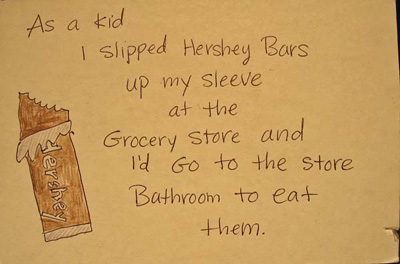 As a kid
I slipped Hershey Bars
up my sleeve
at the
Grocery Store and
I'd Go to the store
Bathroom to eat
them.
Hershey